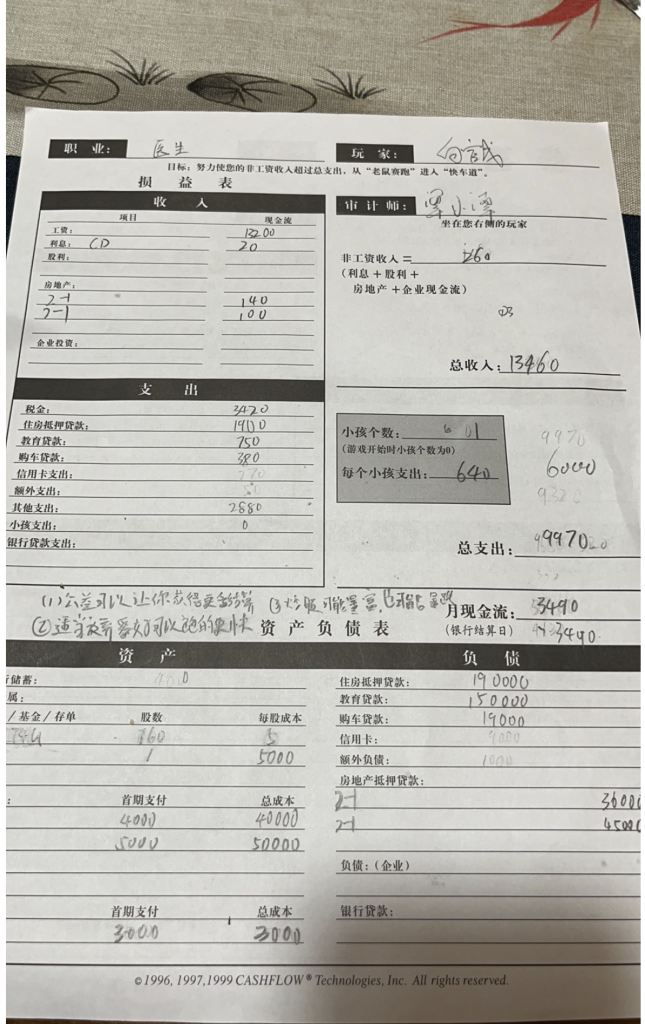 职 业: 医生 玩 家: 向
目标: 努力使您的非工资收入超过总支出, 从“老鼠赛跑”进入“快车道”。
损 益 表
收 入 审 计 师:
项目 现金流 坐在您右侧的玩家
工资: 13200
利息: CD 20 非工资收入 = 260
股利: (利息 + 股利 +
房地产: 房地产 + 企业现金流)
2-1 140
2-1 100
企业投资: 总收入: 13460
支 出
税金: 3420
住房抵押贷款: 1900 小孩个数: 01
教育贷款: 750 (游戏开始时小孩个数为0) 9970
购车贷款: 380 每个小孩支出: 640 6000
信用卡支出: 270 9320
额外支出: 50
其他支出: 2880
小孩支出: 0 总支出: 9970
银行贷款支出:
(1)公益可以让你获得更多结算 (3)炒股可能暴富,也可能暴跌 月现金流: 3490
(2)适当放弃爱好可以跑的更快 资 产 负 债 表 (银行结算日) 3490
资 产 负 债
储蓄: 住房抵押贷款: 190000
属: 教育贷款: 150000
/ 基金 / 存单 股数 每股成本 购车贷款: 19000
160 5 信用卡: 9000
1 5000 额外负债: 1000
房地产抵押贷款:
: 首期支付 总成本 2-1 36000
4000 40000 2-1 45000
5000 50000
负债: (企业)
首期支付 总成本 银行贷款:
3000 3000
© 1996, 1997,1999 CASHFLOW® Technologies, Inc. All rights reserved.